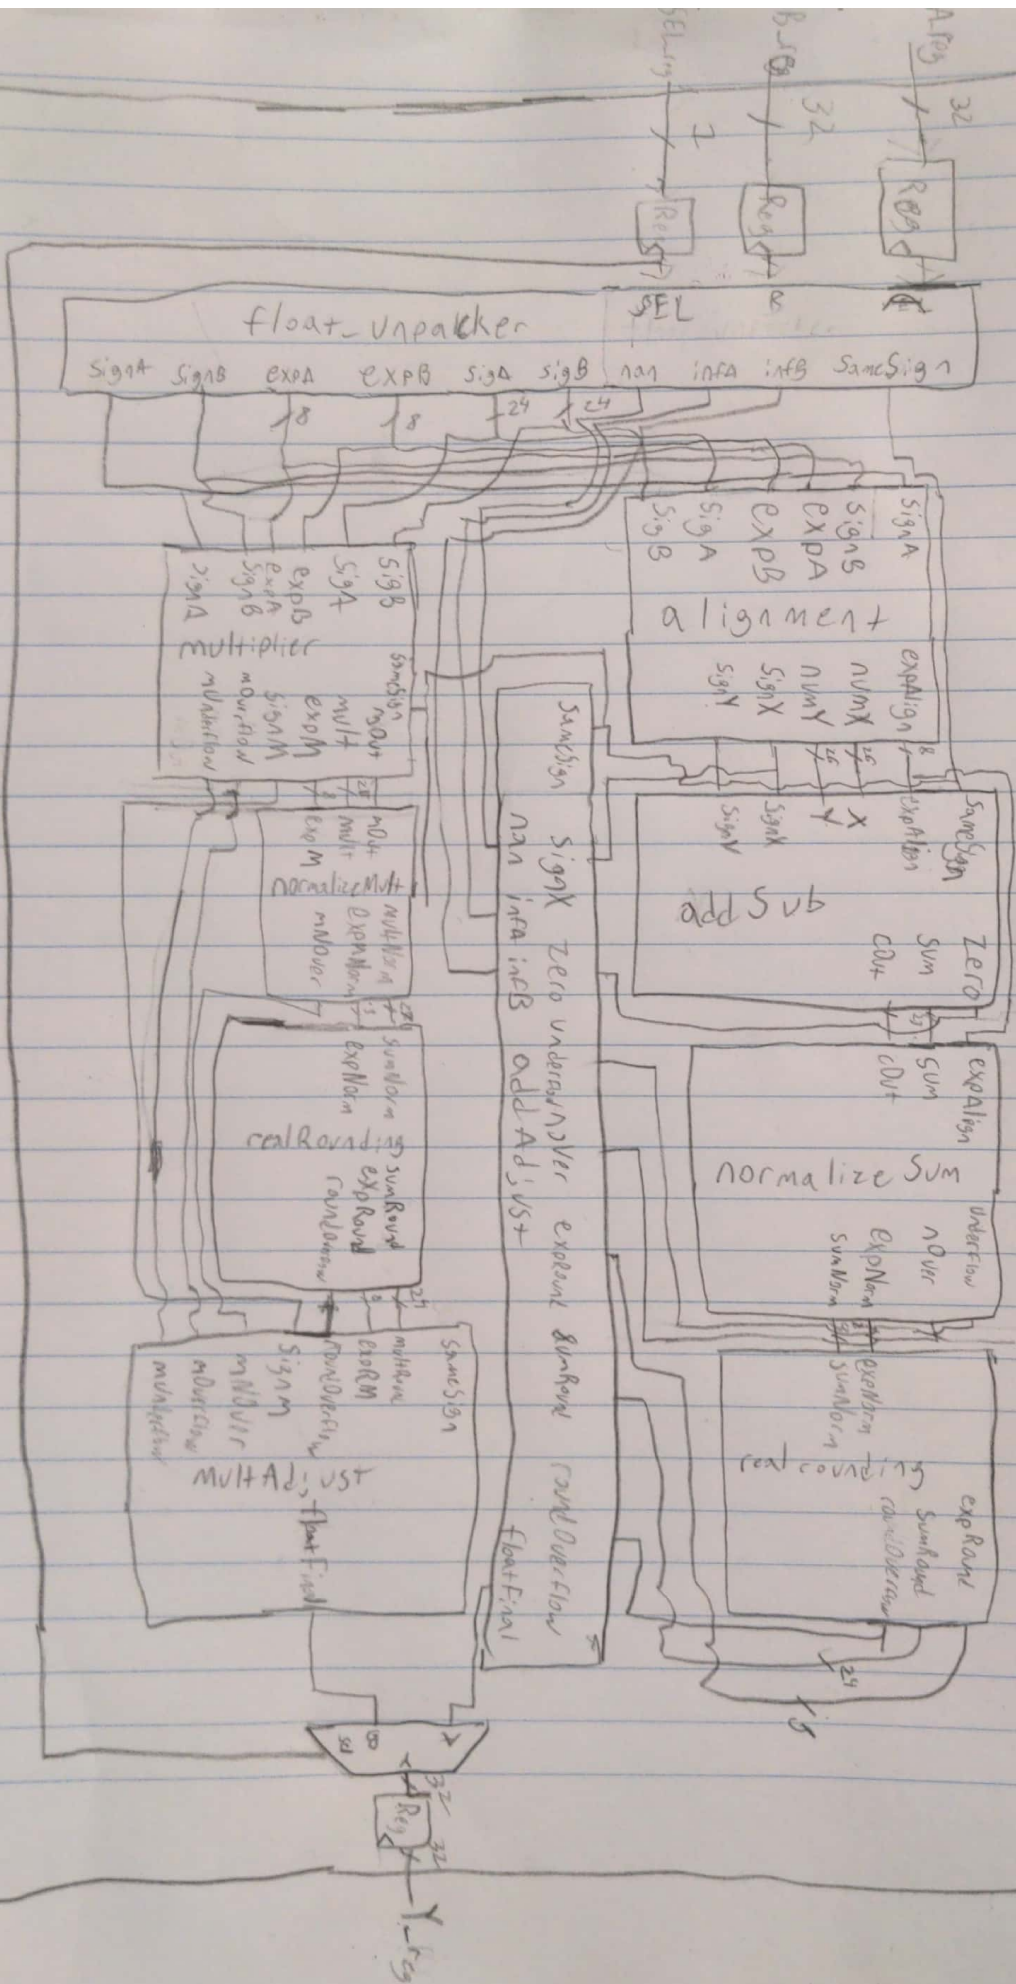 A_reg
32
Reg
B_reg
32
Reg
SEL_reg
1
Reg
B
SEL
float_unpakker
sameSign
infB
infA
nan
sigB
sigA
expB
expA
signB
signA
24
24
8
8
signA
signB
expA
expB
sigA
sigB
alignment
expAlign
numX
numY
signX
signY
8
26
26
sameSign
expAlign
X
Y
signX
signY
addSub
Zero
sum
cOut
27
expAlign
sum
cOut
normalize Sum
underflow
nOver
expNorm
sumNorm
expNorm
sumNorm
real rounding
expRound
sumRound
24
8
sameSign
signX
zero
expRound
sumRound
roundOverflow
nan
infA
infB
addAdjust
floatFinal
sigB
sigA
expB
expA
signB
signA
multiplier
sameSign
mOut
mult
expM
signM
mOverflow
mUnderflow
8
mOut
mult
expM
normalizeMult
multNorm
expMNorm
mNOver
sumNorm
expNorm
realRounding
sumRound
expRound
24
8
sameSign
multRound
expRM
roundOverflow
signM
mNOver
mOverflow
mUnderflow
multAdjust
floatFinal
A
B
sel
Y
32
Reg
32
Y_reg